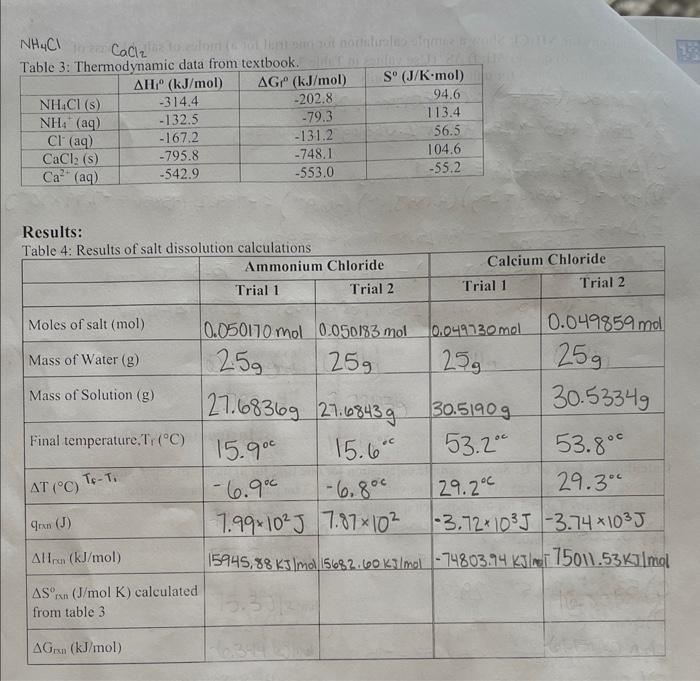 NH4Cl
CaCl2
Table 3: Thermodynamic data from textbook.
ΔHf° (kJ/mol) ΔGf° (kJ/mol) S° (J/K·mol)
NH4Cl (s) -314.4 -202.8 94.6
NH4+ (aq) -132.5 -79.3 113.4
Cl- (aq) -167.2 -131.2 56.5
CaCl2 (s) -795.8 -748.1 104.6
Ca2+ (aq) -542.9 -553.0 -55.2
Results:
Table 4: Results of salt dissolution calculations
Ammonium Chloride Calcium Chloride
Trial 1 Trial 2 Trial 1 Trial 2
Moles of salt (mol) 0.050170 mol 0.050183 mol 0.049730 mol 0.049859 mol
Mass of Water (g) 25g 25g 25g 25g
Mass of Solution (g) 27.6836g 27.6843g 30.5190g 30.5334g
Final temperature, Tf (°C) 15.9°C 15.6°C 53.2°C 53.8°C
ΔT (°C) Tf-Ti -6.9°C -6.8°C 29.2°C 29.3°C
qrxn (J) 7.99×10² J 7.87×10² -3.72×10³ J -3.74×10³ J
ΔHrxn (kJ/mol) 15945,88 KJ/mol 15682.60 KJ/mol -74803.94 KJ/mol 75011.53 KJ/mol
ΔS°rxn (J/mol K) calculated
from table 3
ΔGrxn (kJ/mol)